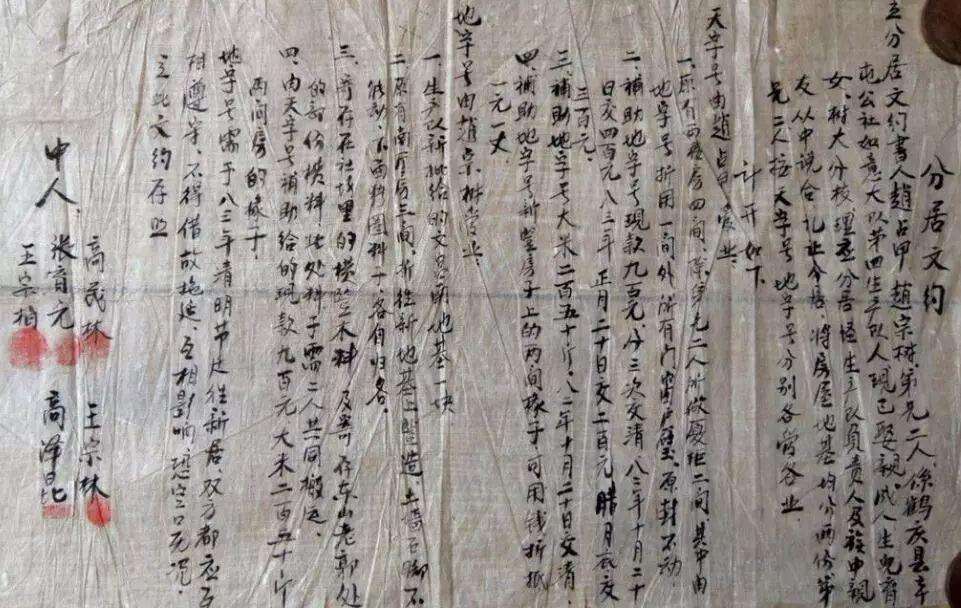 分居文约
立分居文约书人赵占甲、赵宗树弟兄二人,系鹤庆县辛
屯公社如意大队第四生产队人,现已娶亲,成人生儿育
女,树大分枝理应分居,经生产队负责人及族中亲
友从中说合,礼让分居,将房屋地基均分两份,弟
兄二人按天字号地字号分别各管各业。
计开如下
天字号由赵占甲管业。
一、原有西楼房四间,除弟兄二人所做厦柜二间其中由
地字号折用一间外,所有门、窗户壁,原封不动
二、补助地字号现款九百元,分三次交清,八二年十月二十
日交四百元,八三年正月二十日交二百元,腊月底交
三百元。
三、补助地字号大米二百五十斤,八二年十月二十日交清。
四、补助地字号新竖房子上的两间椽子,可用钱折抵
一元一丈
地字号由赵宗树管业。
一、生产队所批给的文星南地基一块
二、原有南厅房三间,折往新地基上竖造,土墙石脚不
能动,东西料圈料子,各自归各。
三、寄存在社场里的横竖木料及寄存东山老郭处
的部份横料,此处料子需二人共同搬运。
四、由天字号补助给的现款九百元,大米二百五十斤
两间房的椽子。
地字号需于八三年清明节迁往新居,双方都应予
以遵守,不得借故拖延,互相影响,恐空口无凭,
立此文约存照
中人 高茂林 王宗林
张育元 高泽昆
王宗柏